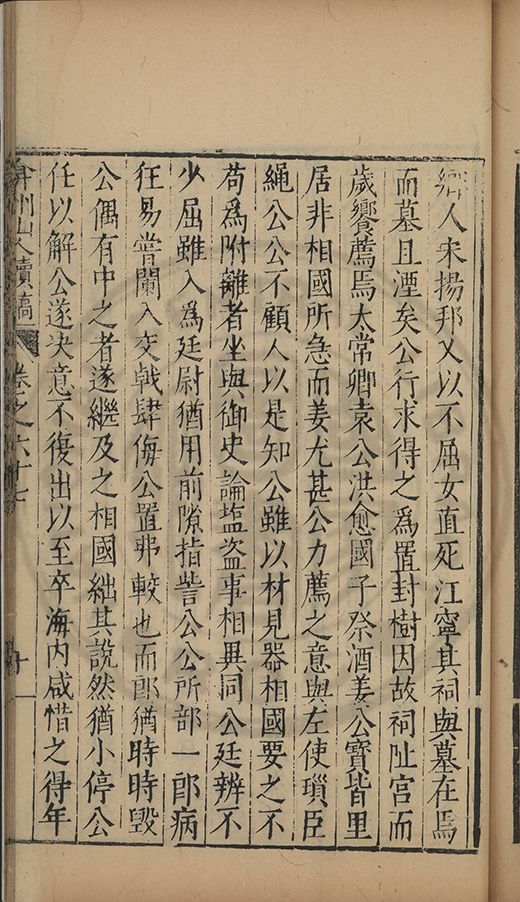 鄉人宋楊邦乂以不屈女直死江寧其祠與墓在焉
而墓且湮矣公行求得之為置封樹因故祠阯宮而
歲饗薦焉太常卿袁公洪愈國子祭酒姜公寶皆里
居非相國所急而姜尤甚公力薦之意與左使瑣臣
繩公公不顧人以是知公雖以材見器相國要之不
苟為附離者坐與御史論塩盜事相異同公廷辨不
少屈雖入為廷尉猶用前隙指訾公公所部一郎病
狂易嘗闌入交戟肆侮公置弗較也而郎猶時時毀
公偶有中之者遂繼及之相國絀其說然猶小停公
任以解公遂决意不復出以至卒海内咸惜之得年
弇州山人續稿 卷之六十七 十一